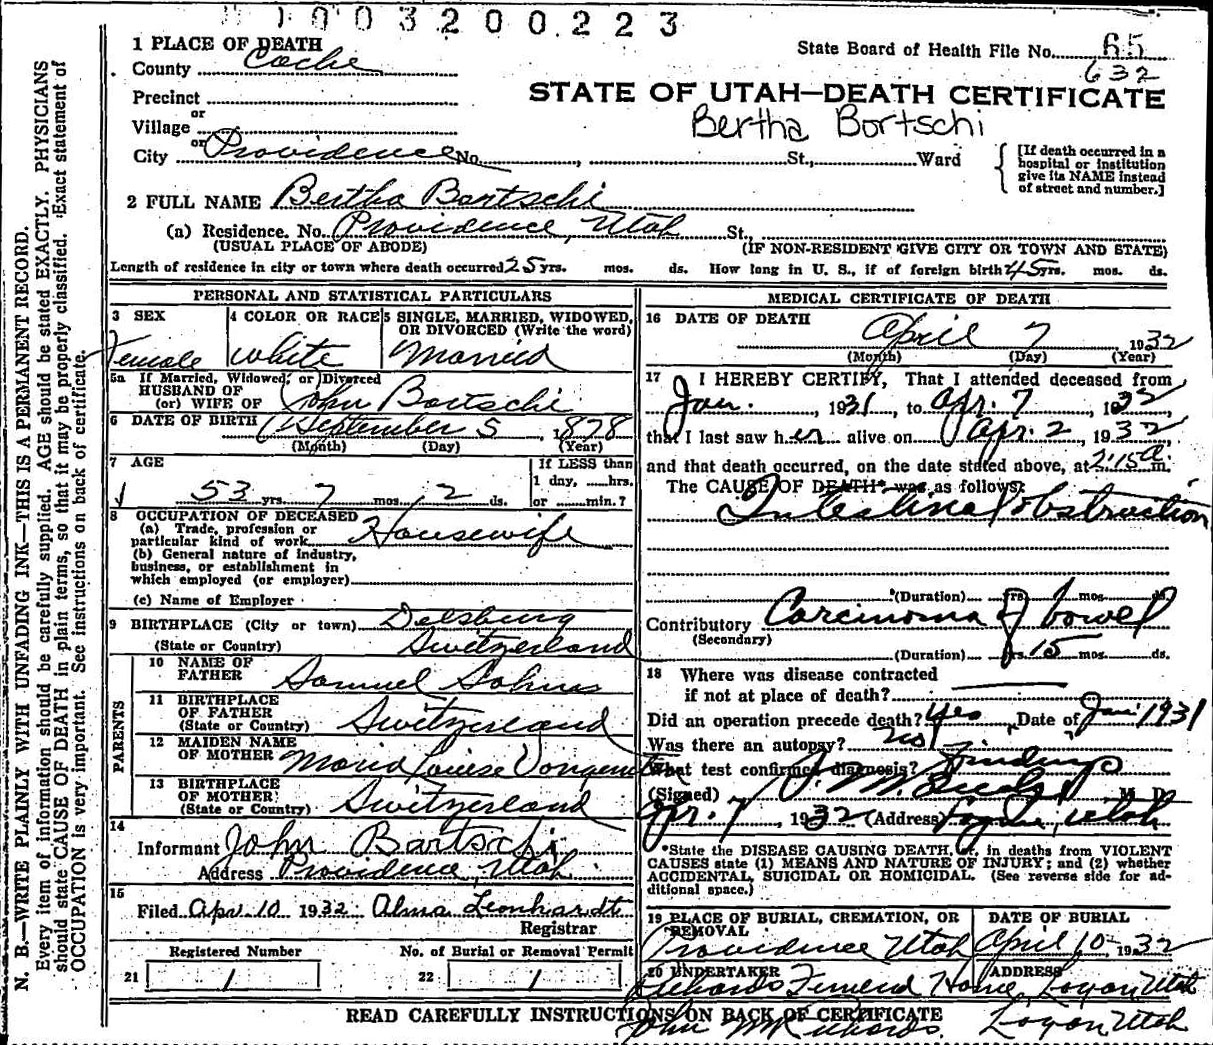 1003200223
1 PLACE OF DEATH
County Cache
State Board of Health File No. 65
632
Precinct
or
Village
or
City Providence No. St., Ward
STATE OF UTAH—DEATH CERTIFICATE
Bertha Bortschi
[If death occurred in a
hospital or institution
give its NAME instead
of street and number.]
2 FULL NAME Bertha Bartschi
(a) Residence. No. Providence, Utah St.,
(USUAL PLACE OF ABODE) (IF NON-RESIDENT GIVE CITY OR TOWN AND STATE)
Length of residence in city or town where death occurred 25 yrs. mos. ds. How long in U. S., if of foreign birth 45 yrs. mos. ds.
PERSONAL AND STATISTICAL PARTICULARS
3 SEX 4 COLOR OR RACE 5 SINGLE, MARRIED, WIDOWED,
OR DIVORCED (Write the word)
Female white Married
5a If Married, Widowed, or Divorced
HUSBAND OF
(or) WIFE OF John Bartschi
6 DATE OF BIRTH September 5, 1878
(Month) (Day) (Year)
7 AGE If LESS than
1 day, hrs.
53 yrs. 7 mos. 2 ds. or min.?
8 OCCUPATION OF DECEASED
(a) Trade, profession or
particular kind of work Housewife
(b) General nature of industry,
business, or establishment in
which employed (or employer)
(c) Name of Employer
9 BIRTHPLACE (City or town) Delsburg
(State or Country) Switzerland
PARENTS
10 NAME OF
FATHER Samuel
11 BIRTHPLACE
OF FATHER
(State or Country) Switzerland
12 MAIDEN NAME
OF MOTHER Maria Louise
13 BIRTHPLACE
OF MOTHER
(State or Country) Switzerland
14
Informant John Bartschi
Address Providence, Utah
15
Filed Apr. 10 1932 Alma Leonhardt
Registrar
Registered Number No. of Burial or Removal Permit
21 1 22 1
MEDICAL CERTIFICATE OF DEATH
16 DATE OF DEATH
April 7 1932
(Month) (Day) (Year)
17 I HEREBY CERTIFY, That I attended deceased from
Jan. , 1931, to Apr. 7 , 1932
that I last saw her alive on Apr. 2, 1932,
and that death occurred, on the date stated above, at 2:15 a m.
The CAUSE OF DEATH* was as follows:
Intestinal obstruction
(Duration) yrs. mos. ds.
Contributory Carcinoma of bowel
(Secondary)
(Duration) yrs. 15 mos. ds.
18 Where was disease contracted
if not at place of death?
Did an operation precede death? Yes Date of Jan 1931
Was there an autopsy? no
What test confirmed diagnosis? Findings
(Signed) M. D.
Apr. 7, 1932 (Address) Utah
*State the DISEASE CAUSING DEATH, or, in deaths from VIOLENT
CAUSES state (1) MEANS AND NATURE OF INJURY; and (2) whether
ACCIDENTAL, SUICIDAL OR HOMICIDAL. (See reverse side for ad-
ditional space.)
19 PLACE OF BURIAL, CREMATION, OR REMOVAL DATE OF BURIAL
Providence Utah April 10 1932
20 UNDERTAKER ADDRESS
Richards Funeral Home, Logan, Utah
READ CAREFULLY INSTRUCTIONS ON BACK OF CERTIFICATE
John M Richards. Logan Utah
N. B.—WRITE PLAINLY WITH UNFADING INK—THIS IS A PERMANENT RECORD.
Every item of information should be carefully supplied. AGE should be stated EXACTLY. PHYSICIANS
should state CAUSE OF DEATH in plain terms, so that it may be properly classified. Exact statement of
OCCUPATION is very important. See instructions on back of certificate.